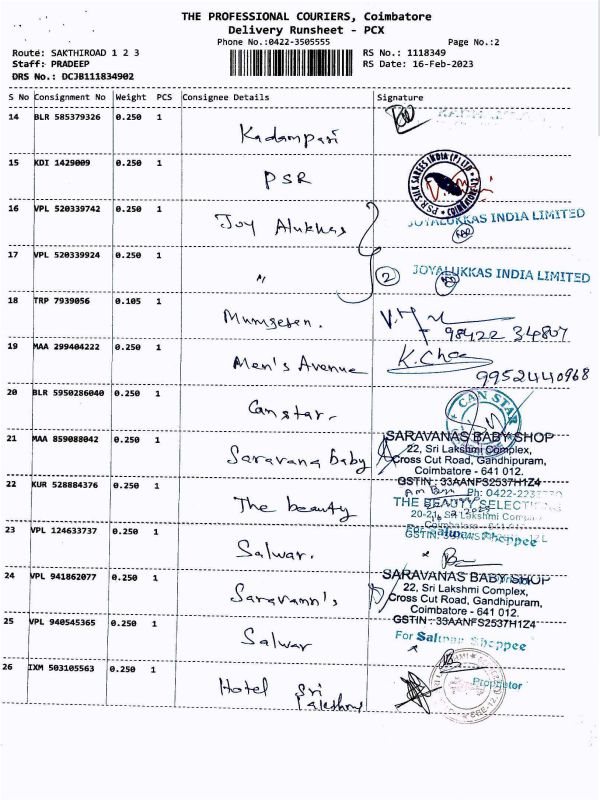 THE PROFESSIONAL COURIERS, Coimbatore
Delivery Runsheet - PCX
Phone No.:0422-3505555 Page No.:2
Route: SAKTHIROAD 1 2 3 RS No.: 1118349
Staff: PRADEEP RS Date: 16-Feb-2023
DRS No.: DCJB111834902
S No Consignment No Weight PCS Consignee Details Signature
14 BLR 585379326 0.250 1
Kadampari
15 KDI 1429009 0.250 1
PSR
PSR SILK SAREES INDIA (P) LTD
16 VPL 520339742 0.250 1
Joy Alukkas JOYALUKKAS INDIA LIMITED
17 VPL 520339924 0.250 1
" 2 JOYALUKKAS INDIA LIMITED
18 TRP 7939056 0.105 1
98422 34807
19 MAA 299404222 0.250 1
Men's Avenue
9952440968
20 BLR 5950286040 0.250 1
Canstar. CAN STAR
21 MAA 859088042 0.250 1
Saravana baby
SARAVANAS BABY SHOP
22, Sri Lakshmi Complex,
Cross Cut Road, Gandhipuram,
Coimbatore - 641 012.
GSTIN : 33AANFS2537H1Z4
22 KUR 528884376 0.250 1
The beauty
Ph: 0422-
THE BEAUTY SELECTION
Sri Lakshmi
23 VPL 124633737 0.250 1
Salwar.
For Salwar Shoppee
24 VPL 941862077 0.250 1
SARAVANAS BABY SHOP
22, Sri Lakshmi Complex,
Cross Cut Road, Gandhipuram,
Coimbatore - 641 012.
GSTIN : 33AANFS2537H1Z4
25 VPL 940545365 0.250 1
Salwar
For Salwar Shoppee
26 IXM 503105563 0.250 1
Hotel Sri
Proprietor